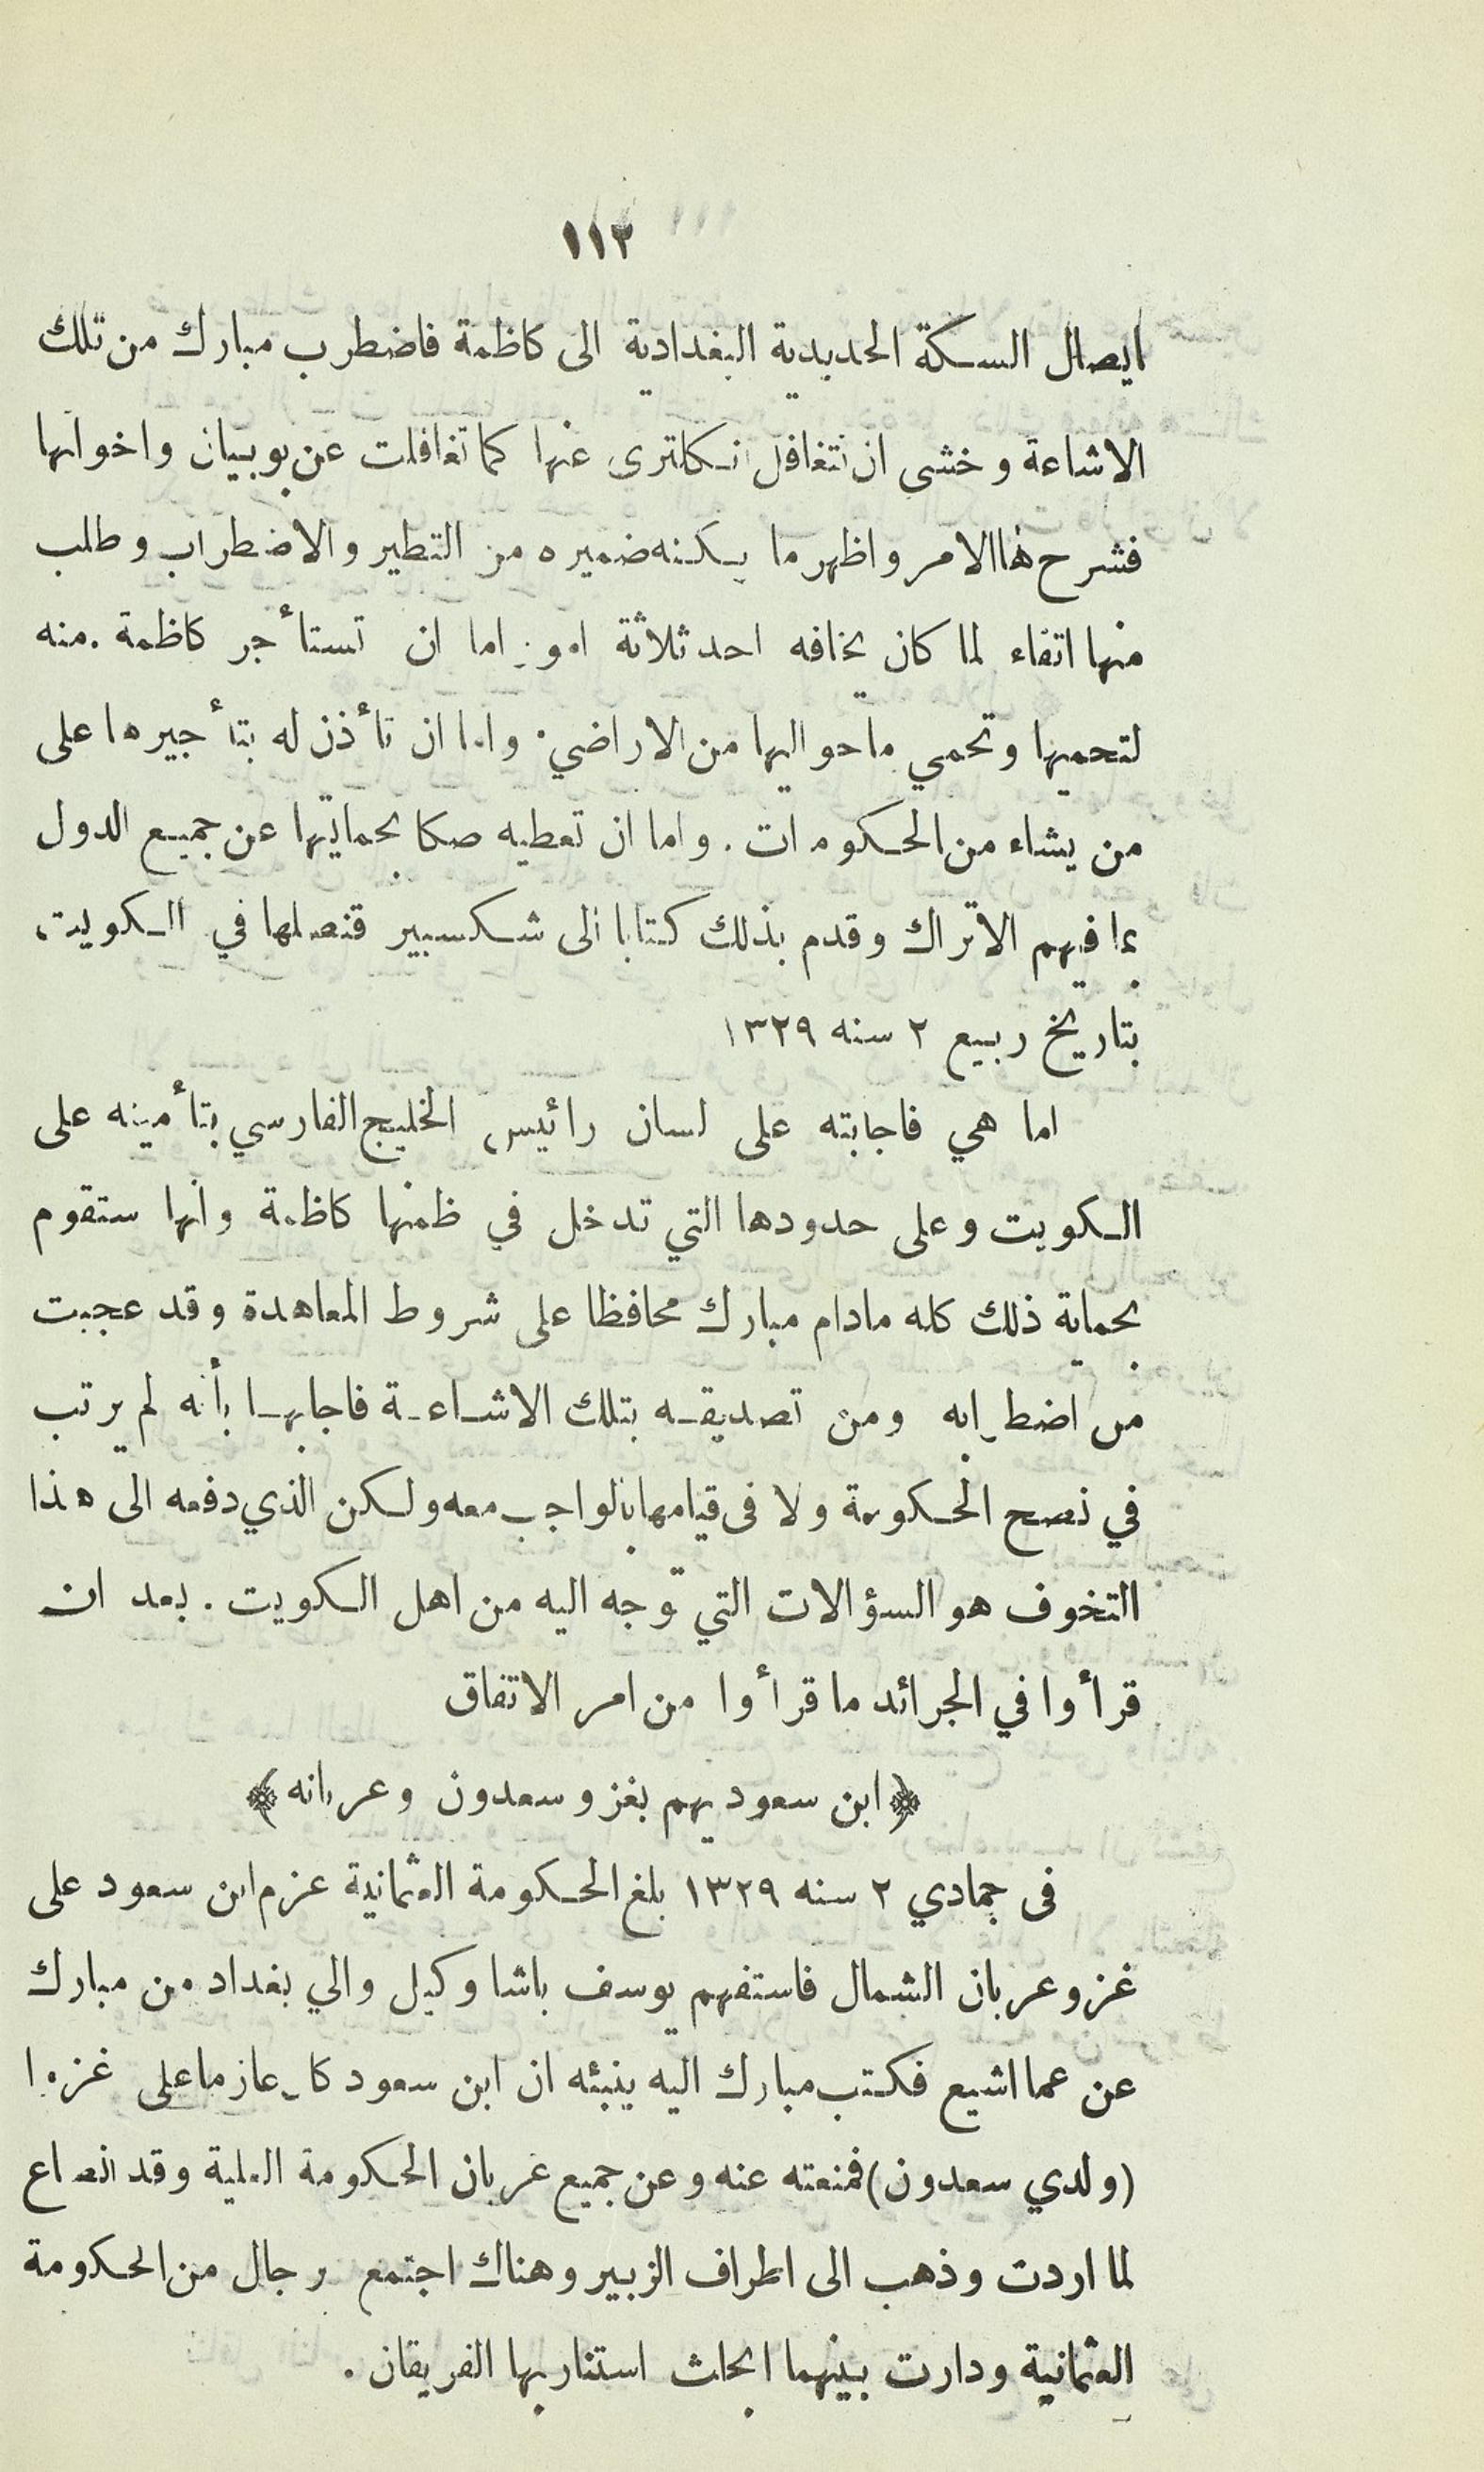 ١١٢
ايصال السكة الحديدية البغدادية الى كاظمة فاضطرب مبارك من تلك
الاشاعة وخشى ان تتغافل انكلترى عنها كما تغافلت عن بوبيان واخواتها
فشرح لها الامر واظهر ما يكنه ضميره من التطير والاضطراب وطلب
منها اتقاء لما كان يخافه احد ثلاثة امور اما ان تستأجر كاظمة منه
لتحميها وتحمي ما حواليها من الاراضي . واما ان تأذن له بتأجيرها على
من يشاء من الحكومات . واما ان تعطيه صكا بحمايتها عن جميع الدول
بما فيهم الاتراك وقدم بذلك كتابا الى شكسبير قنصلها في الكويت ،
بتاريخ ربيع ٢ سنه ١٣٢٩
اما هي فاجابته على لسان رائيس الخليج الفارسي بتأمينه على
الكويت وعلى حدودها التي تدخل في ظمنها كاظمة وانها ستقوم
بحماية ذلك كله مادام مبارك محافظا على شروط المعاهدة وقد عجبت
من اضطرابه ومن تصديقه بتلك الاشاعة فاجابها بأنه لم يرتب
في نصح الحكومة ولا فى قيامها بالواجب معه ولكن الذي دفعه الى هذا
التخوف هو السؤالات التي توجه اليه من اهل الكويت . بعد ان
قرأوا في الجرائد ما قرأوا من امر الاتفاق
﴿ ابن سعود يهم بغزو سعدون وعربانه ﴾
فى جمادي ٢ سنه ١٣٢٩ بلغ الحكومة العثمانية عزم ابن سعود على
غزو عربان الشمال فاستفهم يوسف باشا وكيل والي بغداد من مبارك
عن عما اشيع فكتب مبارك اليه ينبئه ان ابن سعود كان عازما على غزو
(ولدي سعدون) فمنعته عنه وعن جميع عربان الحكومة العلية وقد انصاع
لما اردت وذهب الى اطراف الزبير وهناك اجتمع رجال من الحكومة
العثمانية ودارت بينهما ابحاث استنار بها الفريقان .